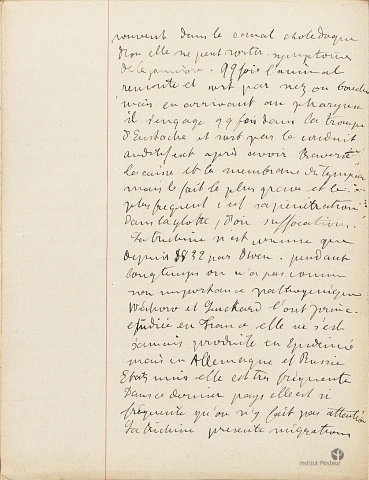 souvent dans le canal cholédoque
d'où elle ne peut sortir symptômes
de la jaunisse. 99 fois l'animal
remonte et sort par nez ou bouche
mais en arrivant au pharynx
il s'engage 99 fois dans la trompe
d'Eustache et sort par le conduit
auditif ext après avoir traversé
la caisse et la membrane du tympan
mais le fait le plus grave et le
plus fréquent c'est sa pénétration
dans la glotte, d'où suffocation.
La trichine n'est connue que
depuis 1832 par Owen. pendant
longtemps on n'a pas connu
son importance pathogénique
Wirchow et Leuckard l'ont
étudiée en France elle ne s'est
jamais produite en Epidémie
mais en Allemagne et Russie
Etats unis elle est très fréquente
Dans ce dernier pays elle est si
fréquente qu'on n'y fait pas attention
La trichine présente migrations
Institut Pasteur